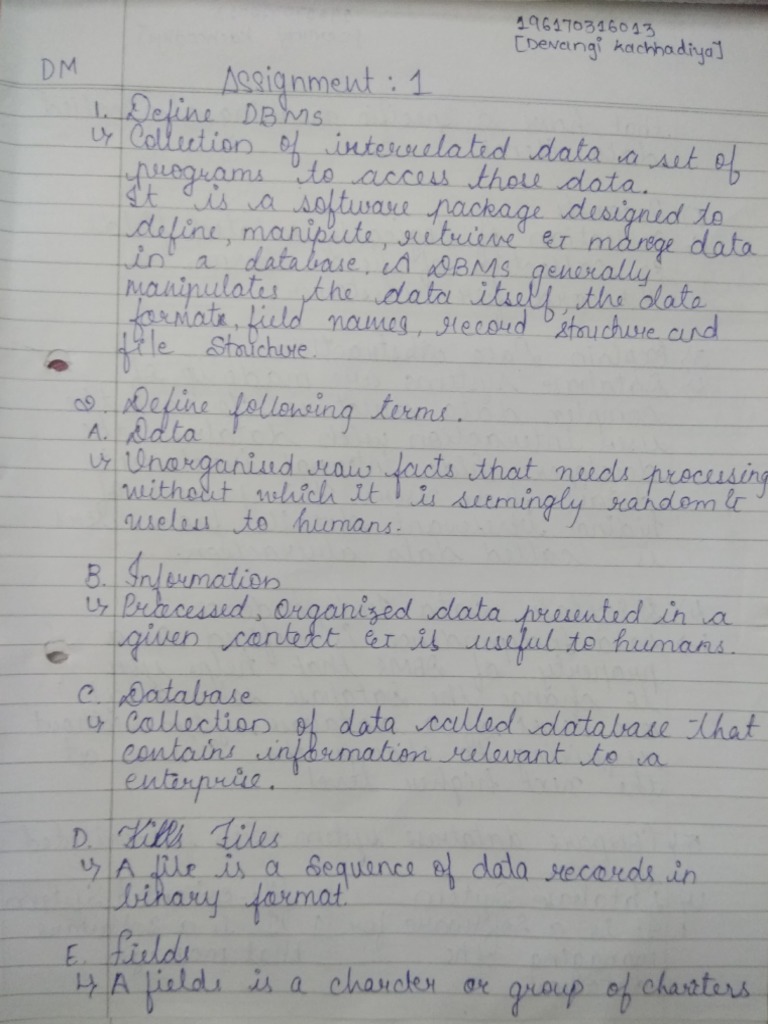 196170316013
[Devangi Kachhadiya]
DM
Assignment : 1
1. Define DBMS
↳ Collection of interrelated data a set of
programs to access those data.
It is a software package designed to
define, manipute, retrieve & marege data
in a database. A DBMS generally
manipulates the data itself, the data
formate, field names, record structure and
file structure.
2. Define following terms.
A. Data
↳ Unorganised raw facts that needs processing
without which it is seemingly random &
useless to humans.
B. Information
↳ Processed, organized data presented in a
given context & is useful to humans.
C. Database
↳ Collection of data called database that
contains information relevant to a
enterprise.
D. Files
↳ A file is a sequence of data records in
binary format.
E. Fields
↳ A fields is a charcter or group of charcters